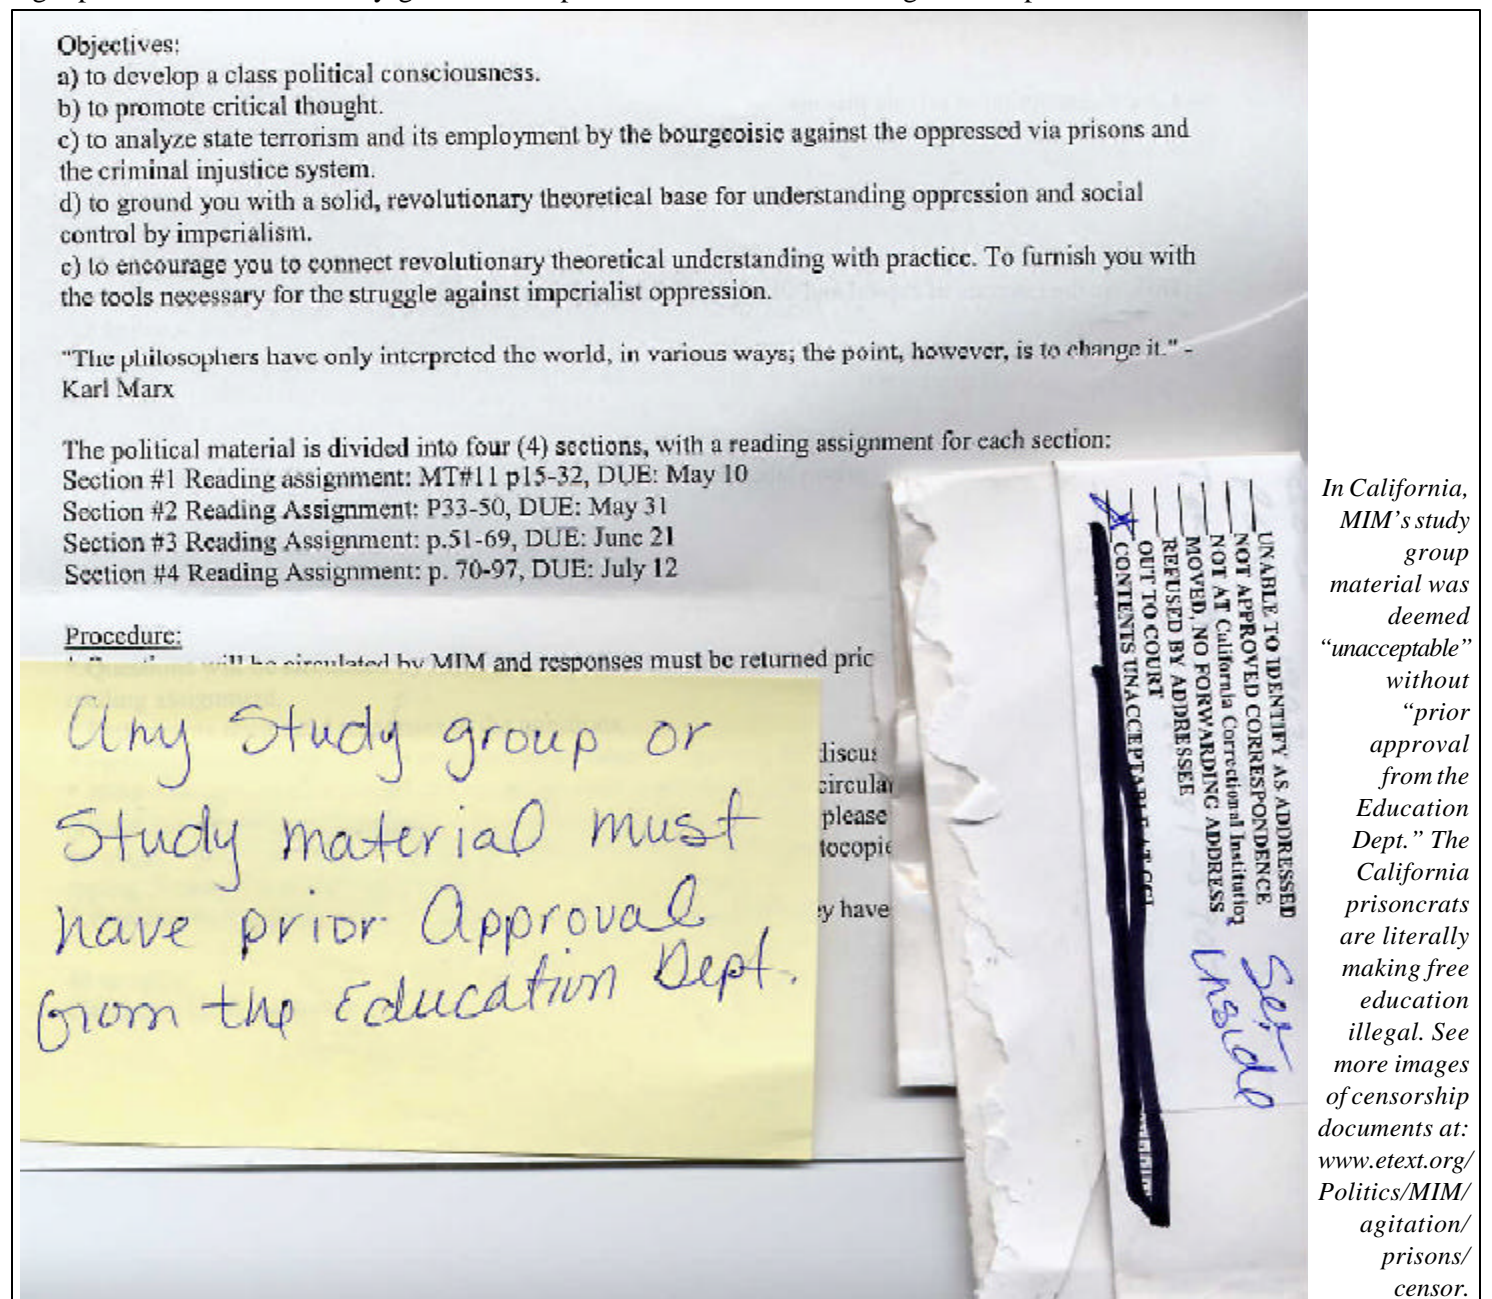 Objectives:
a) to develop a class political consciousness.
b) to promote critical thought.
c) to analyze state terrorism and its employment by the bourgeoisie against the oppressed via prisons and
the criminal injustice system.
d) to ground you with a solid, revolutionary theoretical base for understanding oppression and social
control by imperialism.
e) to encourage you to connect revolutionary theoretical understanding with practice. To furnish you with
the tools necessary for the struggle against imperialist oppression.
"The philosophers have only interpreted the world, in various ways; the point, however, is to change it." -
Karl Marx
The political material is divided into four (4) sections, with a reading assignment for each section:
Section #1 Reading assignment: MT#11 p15-32, DUE: May 10
Section #2 Reading Assignment: P33-50, DUE: May 31
Section #3 Reading Assignment: p.51-69, DUE: June 21
Section #4 Reading Assignment: p. 70-97, DUE: July 12
Procedure:
will be circulated by MIM and responses must be returned
discus
circula
please
tocopie
y have
Any Study group or
Study material must
have prior Approval
from the Education Dept.
UNABLE TO IDENTIFY AS ADDRESSED
NOT APPROVED CORRESPONDENCE
NOT AT California Correctional Institution
MOVED, NO FORWARDING ADDRESS
REFUSED BY ADDRESSEE
OUT TO COURT
CONTENTS UNACCEPTABLE AT CCI
See
Inside
In California,
MIM's study
group
material was
deemed
"unacceptable"
without
"prior
approval
from the
Education
Dept." The
California
prisoncrats
are literally
making free
education
illegal. See
more images
of censorship
documents at:
www.etext.org/
Politics/MIM/
agitation/
prisons/
censor.